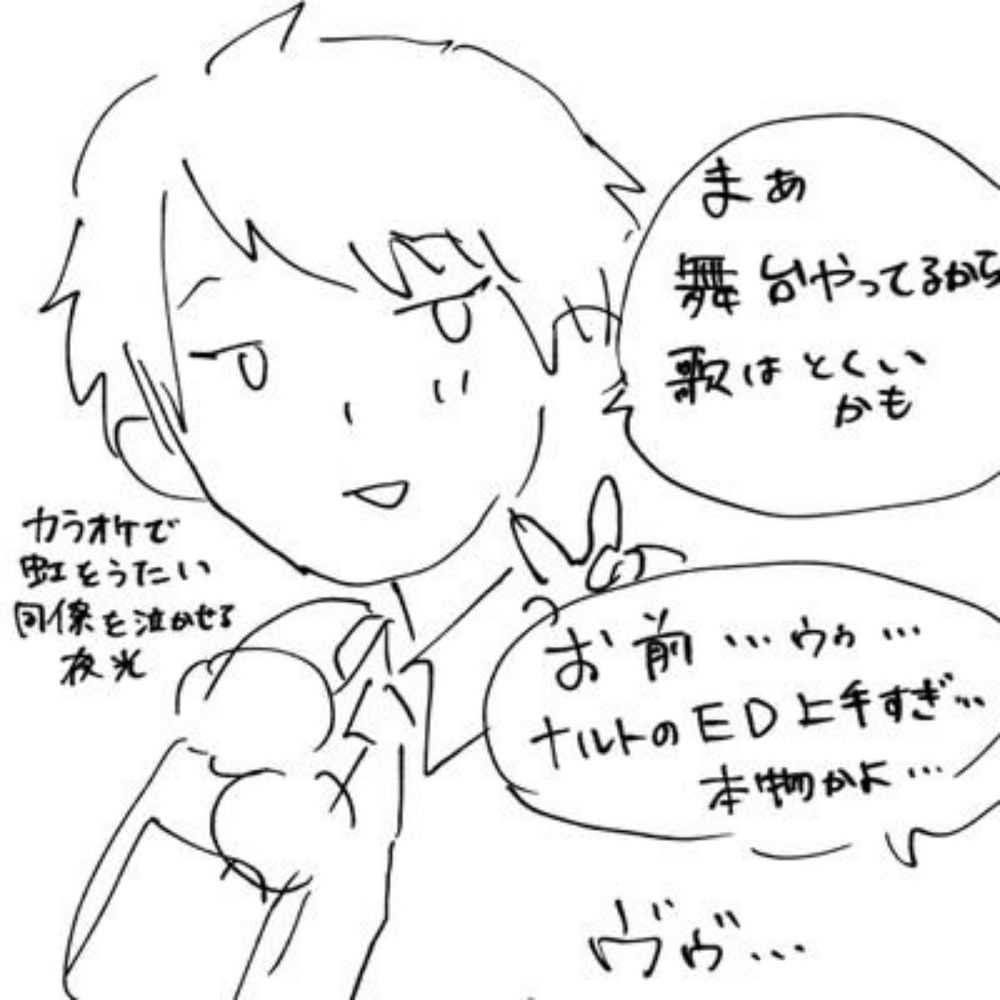 まぁ
舞台やってるから
歌はとくい
かも
カラオケで
虹をうたい
同僚を泣かせる
夜光
お前…ウゥ…
ナルトのED上手すぎ…
本物かよ…
ヴヴ…